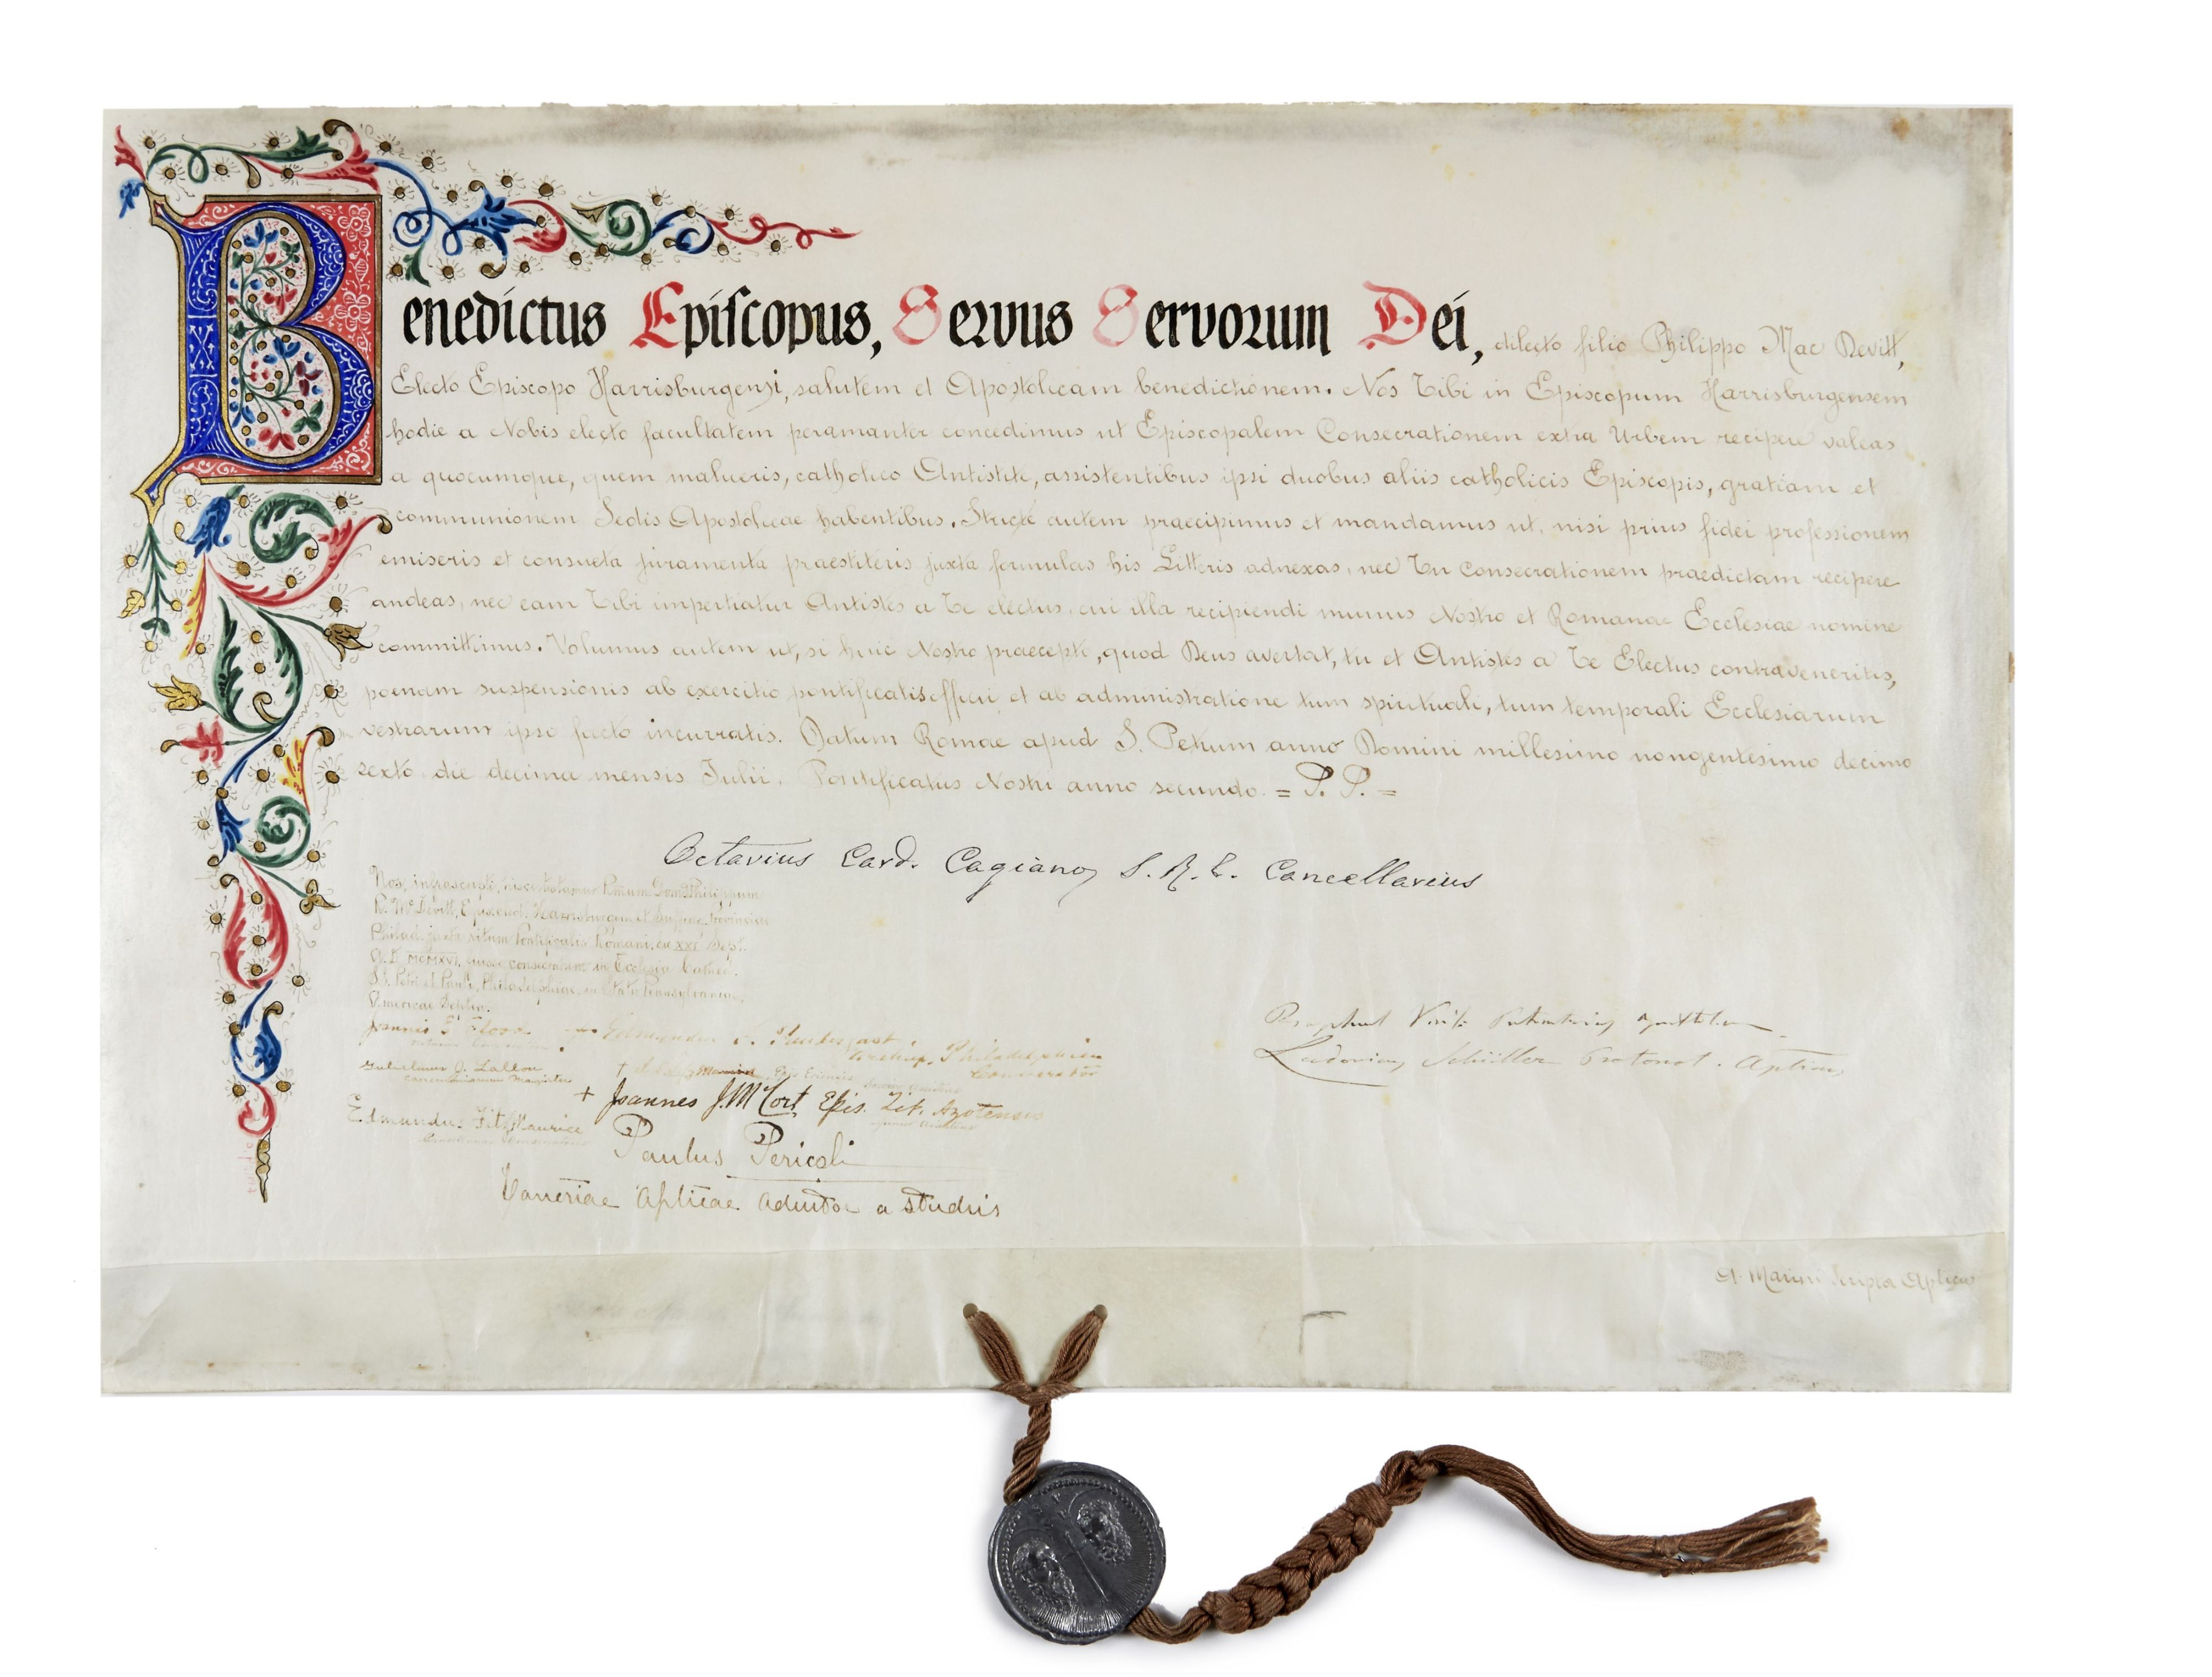 Benedictus Episcopus, Servus Servorum Dei, dilecto filio Philippo Mac Devitt,
Electo Episcopo Harrisburgensi, salutem et Apostolicam benedictionem. Nos Tibi in Episcopum Harrisburgensem
hodie a Nobis electo facultatem peramanter concedimus ut Episcopalem Consecrationem extra Urbem recipere valeas
a quocumque, quem malueris, catholico Antistite, assistentibus ipsi duobus aliis catholicis Episcopis, gratiam et
communionem Sedis Apostolicae habentibus. Stricte autem praecipimus et mandamus ut, nisi prius fidei professionem
emiseris et consueta juramenta praestiteris juxta formulas his Litteris adnexas, nec Tu Consecrationem praedictam recipere
audeas, nec eam Tibi impertiatur Antistes a Te electus, cui illa recipiendi munus Nostro et Romanae Ecclesiae nomine
committimus. Volumus autem ut, si huic Nostro praecepto, quod Deus avertat, tu et Antistes a Te Electus contraveneritis,
poenam suspensionis ab exercitio pontificalis officii et ab administratione tum spirituali, tum temporali Ecclesiarum
vestrarum ipso facto incurratis. Datum Romae apud S. Petrum anno Domini millesimo nongentesimo decimo
sexto die decima mensis Julii, Pontificatus Nostri anno secundo. = P. P. =
Octavius Card. Cagiano, S. R. E. Cancellarius
Nos, infrascripti, Philippum
R. McDevitt, Harrisburgen
Philad. juxta ritum Pontificalis Romani, die XXI Sept.
A.D. MCMXVI, consecratum in Ecclesia Cathed.
SS. Petri et Pauli, Philadelphiae, in Statu Pennsylvaniae,
Americae Septen.
Joannes E. Flood
Archiep. Philadelphien
Consecrator
Raphael Virili
Ludovicus Schüller Protonot. Aplicus
Gulielmus J. Lallou
caeremoniarum Magister
+ Joannes J. McCort, Epis. Tit. Azotensis
Edmundus FitzMaurice
Paulus Pericoli
Cancriae Aplicae Adiutor a studiis
A. Marini Scripta Aplicus